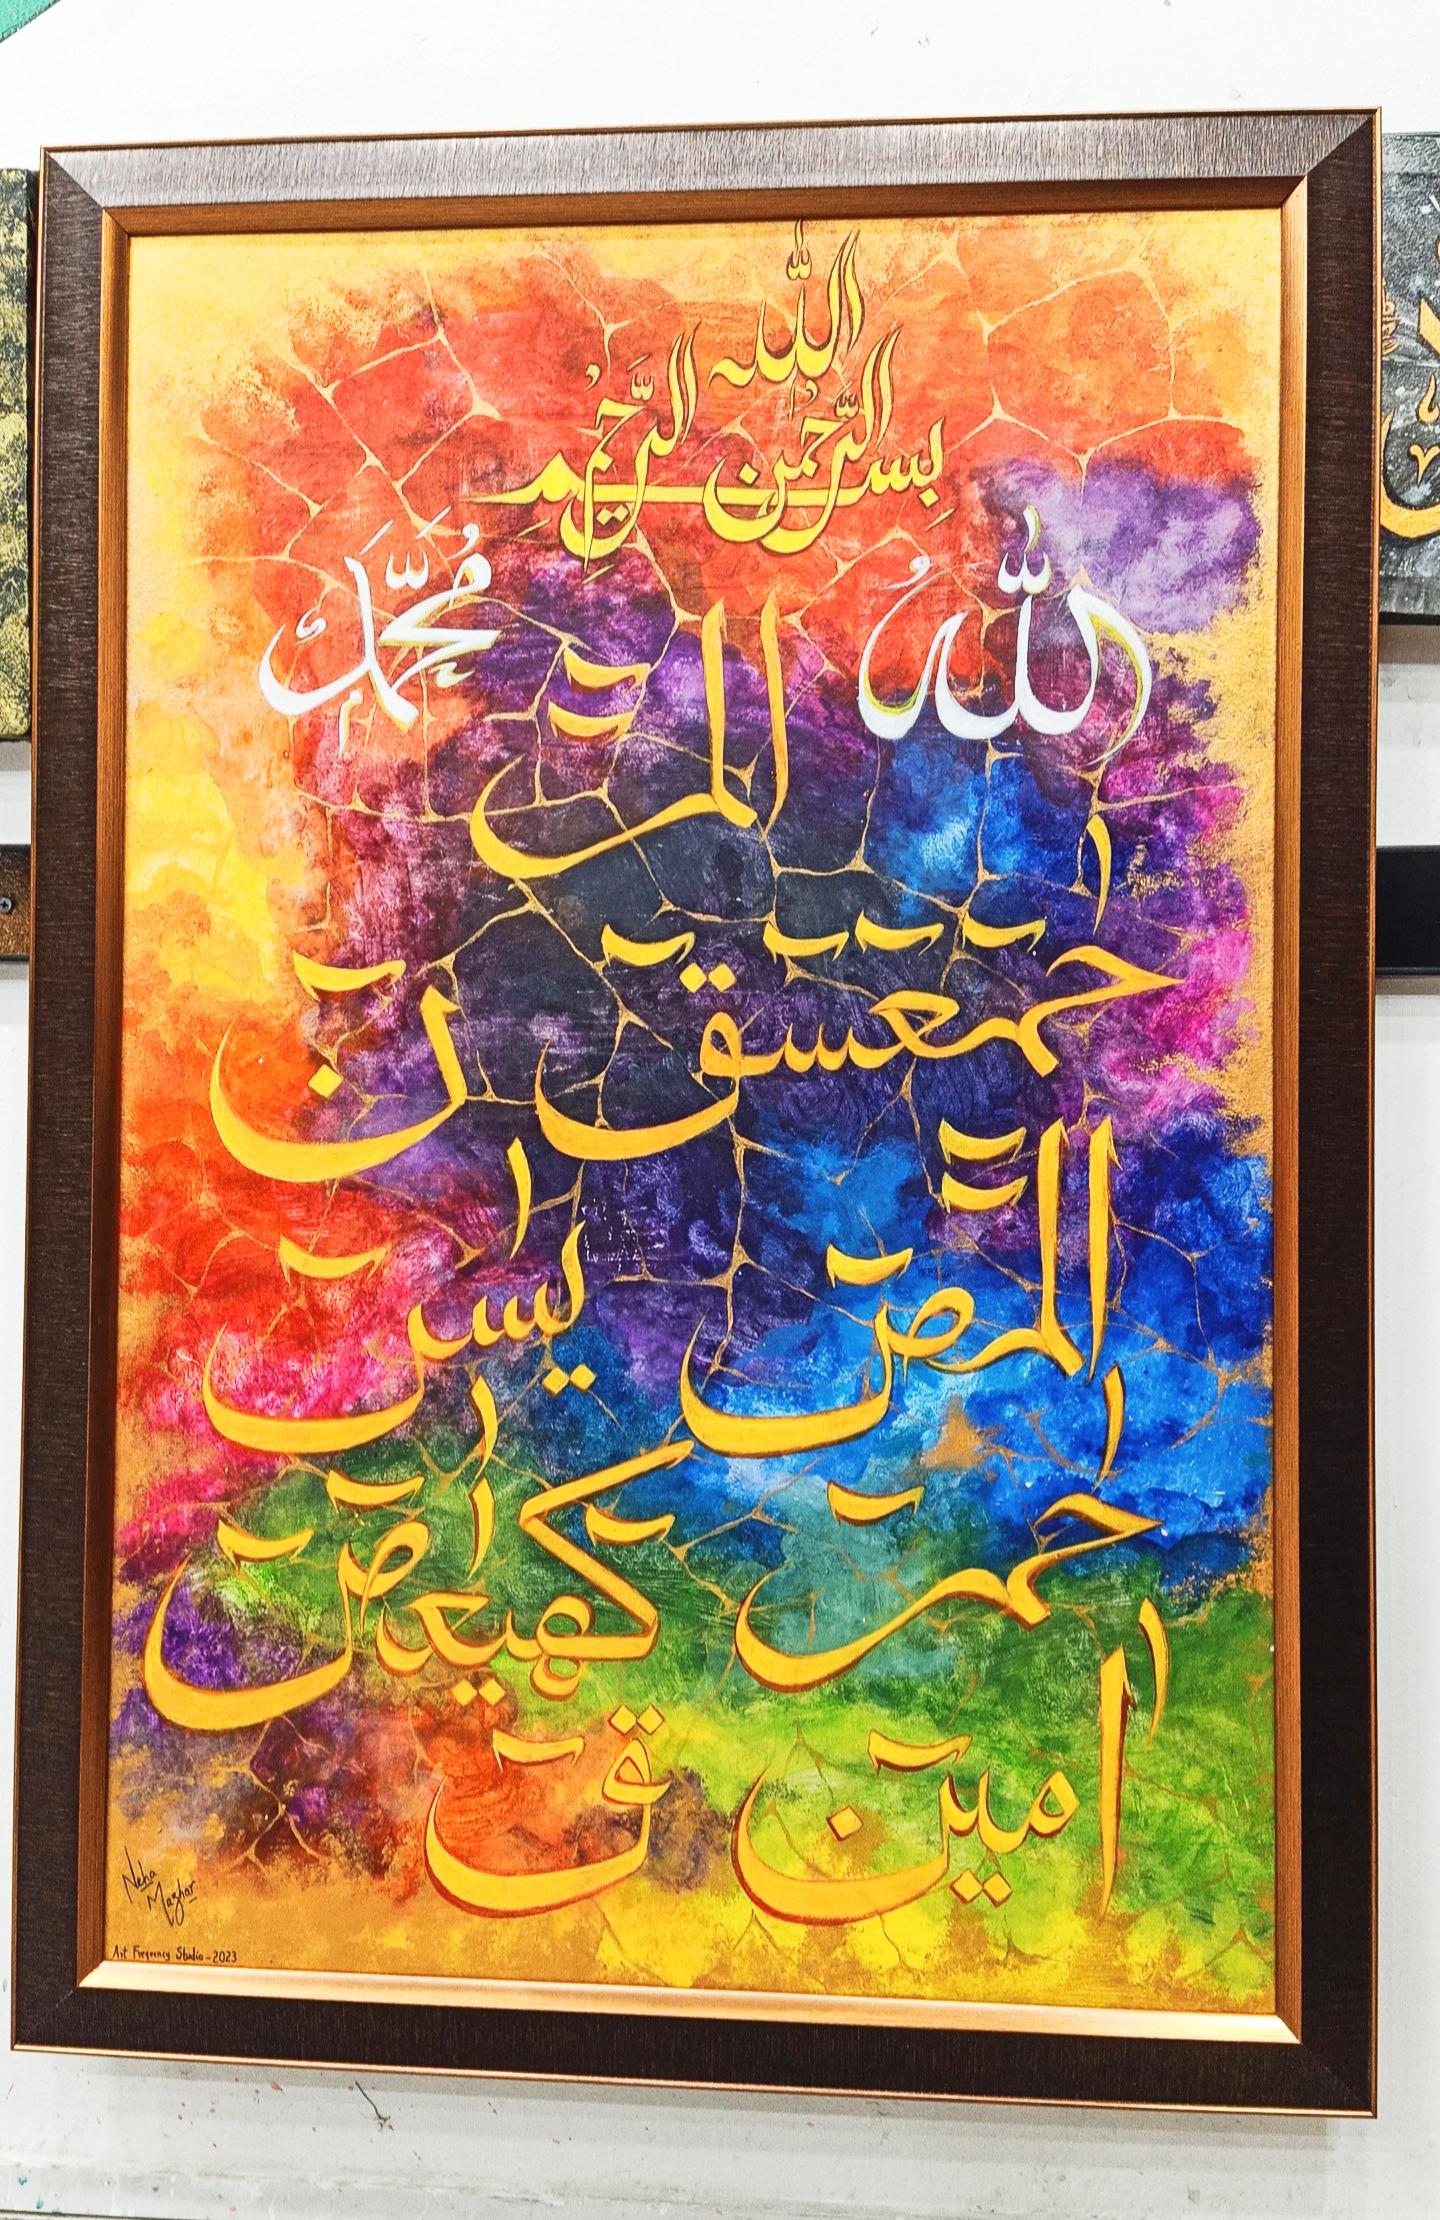 بِسْمِ اللّٰهِ الرَّحْمٰنِ الرَّحِيْمِ
اللّٰهُ مُحَمَّدٌ
الٓمٓرٰ
حٰمٓ عٓسٓقٓ نٓ
الٓمٓصٓ يٰسٓ
حٰمٓ كٓهٰيٰعٓصٓ
اٰمِيٓن قٓ
Neha Mazhar
Art Frequency Studio - 2023